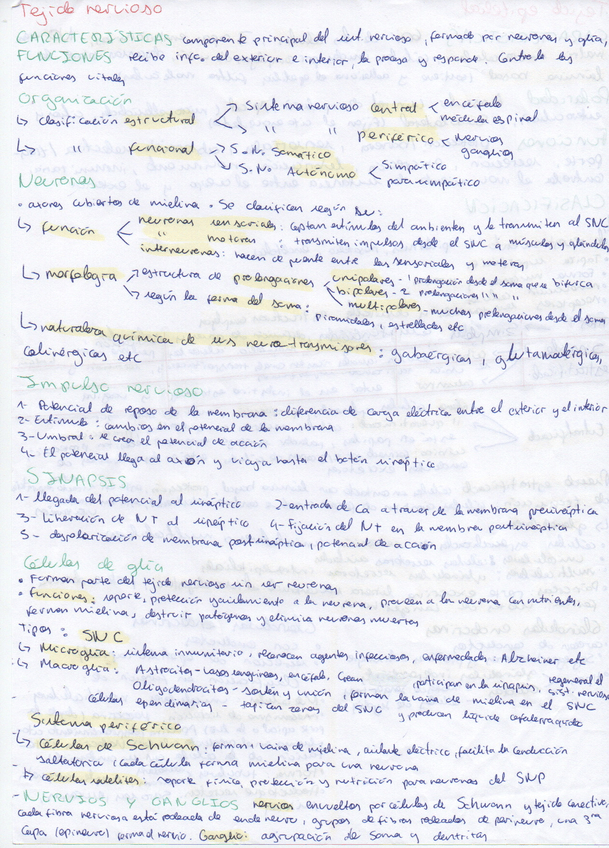 Tejido nervioso
CARACTERÍSTICAS componente principal del sist nervioso, formado por neuronas y glia,
FUNCIONES recibe info. del exterior e interior, la procesa y responde. Controla las
funciones vitales
Organización
↳ clasificación estructural → Sistema nervioso central < encéfalo
médula espinal
→ " " periférico < nervios
ganglios
↳ " funcional → S.N. Somático
→ S.N. Autónomo < Simpático
parasimpático
Neuronas
• axones cubiertos de mielina • Se clasifican según su:
↳ función < neuronas sensoriales: captan estímulos del ambiente y la transmiten al SNC
" motoras : transmiten impulsos desde el SNC a músculos y glándulas
interneuronas: hacen de puente entre las sensoriales y motoras
↳ morfología → estructura de prolongaciones < Unipolares - 1 prolongación desde el soma que se bifurca
bipolares - 2 prolongaciones " " "
multipolares - muchas prolongaciones desde el soma
→ según la forma del soma: piramidales, estrellados etc
↳ naturaleza química de sus neuro-transmisores: gabaérgicas, glutamatérgicas,
colinérgicas etc
Impulso nervioso
1- Potencial de reposo de la membrana: diferencia de carga eléctrica entre el exterior y el interior
2- Estímulo: cambios en el potencial de la membrana
3- Umbral: se crea el potencial de acción
4- El potencial llega al axón y viaja hasta el botón sináptico
SINAPSIS
1- llegada del potencial al sináptico 2- entrada de Ca a través de la membrana presináptica
3- Liberación de NT al sináptico 4- fijación del NT en la membrana postsináptica
5- despolarización de membrana postsináptica, potencial de acción
Células de glia
• Forman parte del tejido nervioso sin ser neuronas
• Funciones: soporte, protección y aislamiento a la neurona, proveen a la neurona con nutrientes,
forman mielina, destruir patógenos y elimina neuronas muertas
Tipos: SNC
↳ Microglia: sistema inmunitario, reconocen agentes infecciosos, enfermedades: Alzheimer etc
↳ Macroglia: Astrocitos - vasos sanguíneos, encéfalo, crean participan en la sinapsis, regeneral el sist. nervioso
Oligodendrocitos - sostén y unión, forman la vaina de mielina en el SNC
células ependimarias - tapizan zonas del SNC y producen líquido cefalorraquídeo
Sistema periférico
↳ Células de Schwann: forman vaina de mielina, aislante eléctrico, facilita la conducción
saltatoria: cada célula forma mielina para una neurona
↳ células satélites: soporte físico, protección y nutrición para neuronas del SNP
- NERVIOS Y GANGLIOS nervios envueltos por células de Schwann y tejido conectivo,
cada fibra nerviosa está rodeada de endoneuro, grupos de fibras rodeadas de perineuro, una 3ra
capa (epineuro) forma el nervio. Ganglio: agrupación de soma y dentritas